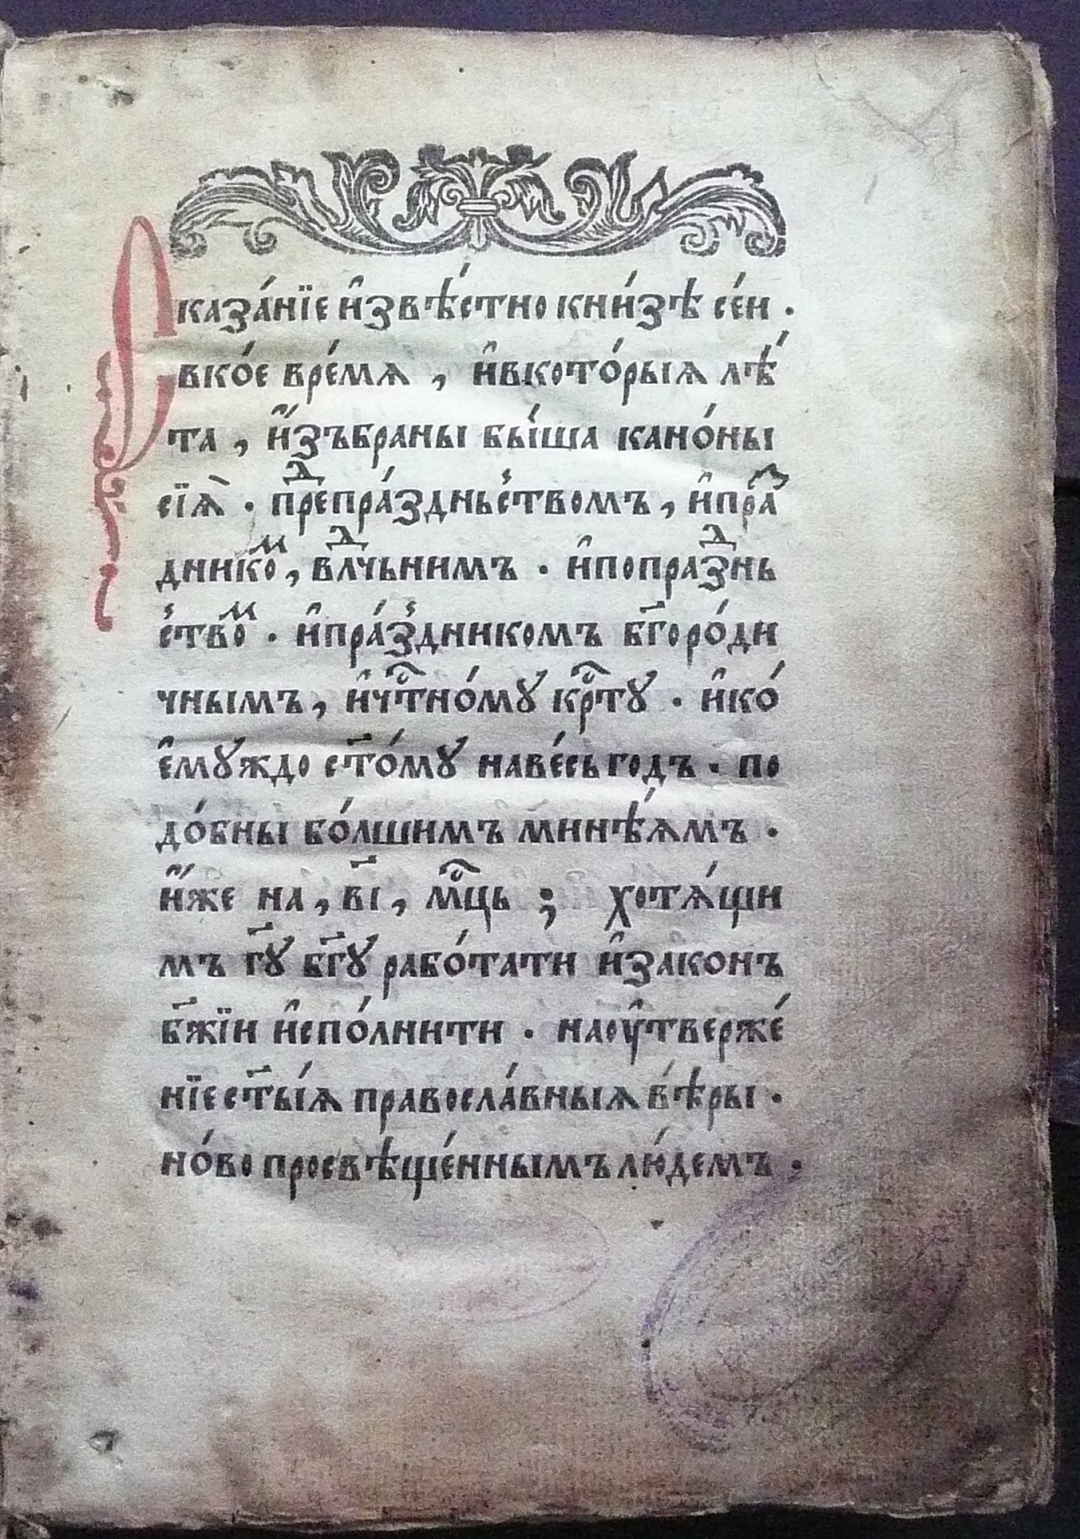 Сказа́нїе и҆звѣ́стно кни́зѣ се́и .
вко́е вре́мѧ , и҆вкото́рыѧ лѣ́
та , и҆́зъбраны бы́ша кано́ны
сїѧ̀ . прⷣепра́здньс́твомъ , и҆праⷥ
дникоⷨ , влⷣчьнимъ . и҆попразⷣнь
с́твоⷨ . и҆пра́здникомъ бг҃оро́ди
чнымъ , и҆чтⷭ҇но́мꙋ крⷭ҇тꙋ . и҆ко́
е҆мꙋждо ст҃о́мꙋ наве́сь годъ . по
до́бны бо́лшимъ минѣ́ѧмъ .
и҆́же на , в҃і , мцⷭ҇ь ; хотѧ́щи
мъ гꙋ҃ бг҃ꙋ рабо́тати и҆законъ
бж҃їи и҆спо́лнити . наоу҆тверже́
нїе ст҃ы́ѧ правосла́вныѧ вѣ́ры .
но́во просвѣще́ннымъ лю́демъ .